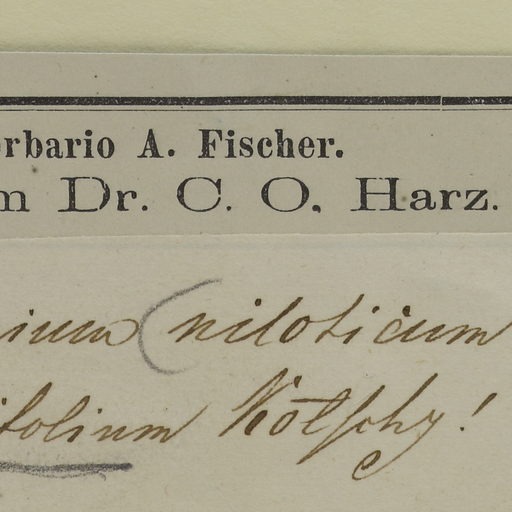 erbario A. Fischer.
m Dr. C. O. Harz.
ium (niloticum
ifolium Kotschy!